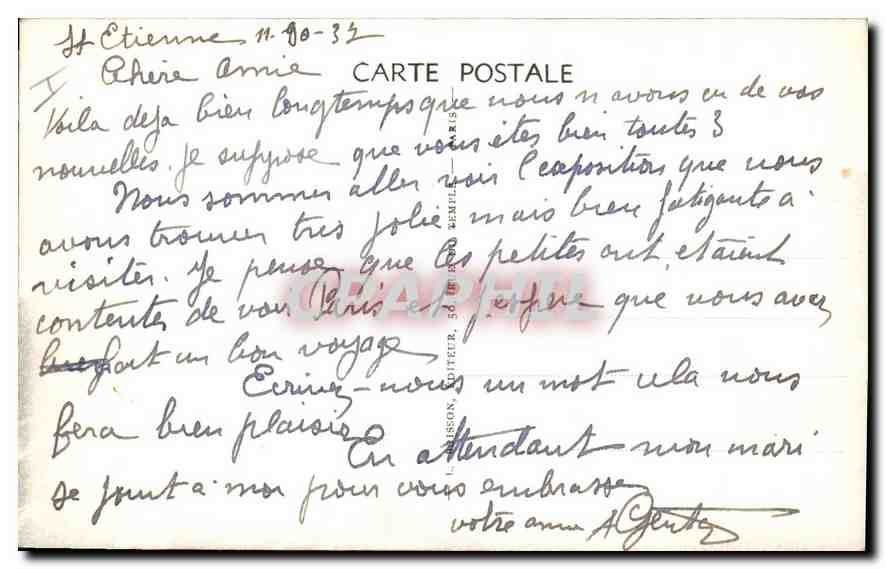 St Etienne 11-10-37
Chère Amie
CARTE POSTALE
Voila deja bien longtemps que nous n avons eu de vos
nouvelles. Je suppose que vous êtes bien toutes 3
Nous sommes aller voir l'exposition que nous
avons trouver très jolie mais bien fatigante à
visiter. Je pense que les petites ont etaient
contentes de voir Paris et j'espère que vous avez
fait un bon voyage
Ecrivez-nous un mot cela nous
fera bien plaisir
En attendant mon mari
se joint à moi pour vous embrasser
votre amie A
ÉDITEUR, 50 RUE DU TEMPLE — PARIS
CRAPHIL